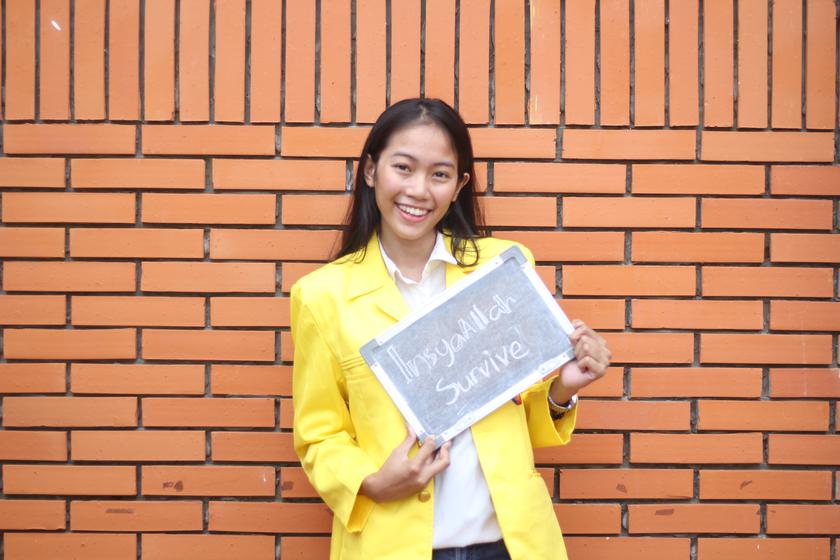 InsyaAllah
Survive